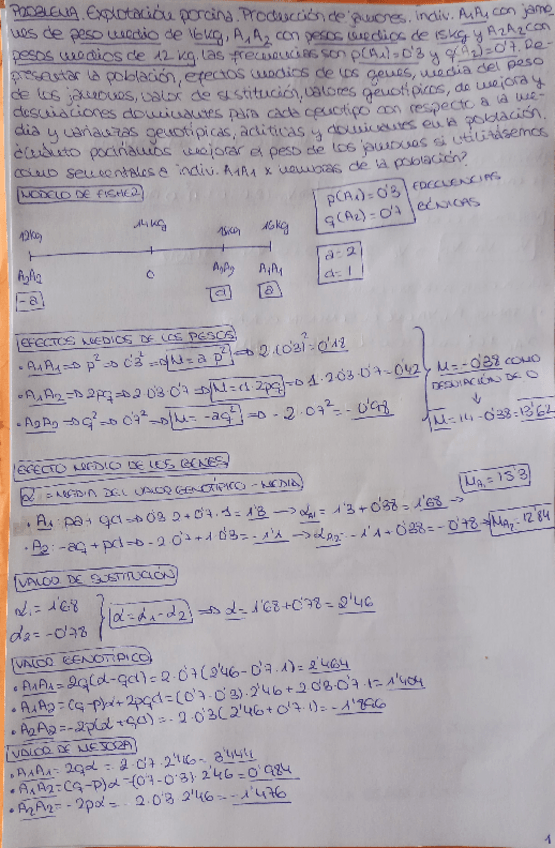 PROBLEMA. Explotación porcina. Producción de jamones. indiv. A1A1 con jamo
nes de peso medio de 16kg, A1A2 con pesos medios de 15kg y A2A2 con
pesos medios de 12 kg. las frecuencias son p(A1)=0'3 y q(A2)=0'7. Re-
presentar la población, efectos medios de los genes, media del peso
de los jamones, valor de sustitución, valores genotípicos, de mejora y
desviaciones dominantes para cada genotipo con respecto a la me-
dia y varianzas genotípicas, aditivas y dominantes en la población.
¿Cuánto podríamos mejorar el peso de los jamones si utilizásemos
como sementales a indiv. A1A1 x hembras de la población?
MODELO DE FISHER
p(A1)=0'3
q(A2)=0'7
FRECUENCIAS
GÉNICAS
12kg 14kg 15kg 16kg
A2A2 0 A1A1
-a d a
a=2
d=1
EFECTOS MEDIOS DE LOS PESOS
· A1A1 => p² => 0'3² => M=a p² => 2·(0'3)²=0'18
· A1A2 => 2pq => 2·0'3·0'7 => M=d·2pq => 1·2·0'3·0'7=0'42
· A2A2 => q² => 0'7² => M=-aq² => -2·0'7²=-0'98
M=-0'38 COMO
DESVIACIÓN DE 0
↓
M=14-0'38=13'62
EFECTO MEDIO DE LOS GENES
α=MEDIA DEL VALOR GENOTÍPICO-MEDIA
· A1: pa+qd => 0'3·2+0'7·1=1'3 → αA1=1'3+0'38=1'68 → MA1=15'3
· A2: -aq+pd => -2·0'7+1·0'3=-1'1 → αA2=-1'1+0'38=-0'78 → MA2=12'84
VALOR DE SUSTITUCIÓN
α1=1'68
α2=-0'78
α=α1-α2 => α=1'68+0'78=2'46
VALOR GENOTÍPICO
· A1A1=2q(α-qd)=2·0'7(2'46-0'7·1)=2'464
· A1A2=(q-p)α+2pqd=(0'7-0'3)·2'46+2·0'3·0'7·1=1'404
· A2A2=-2p(α+qd)=-2·0'3(2'46+0'7·1)=-1'896
VALOR DE MEJORA
· A1A1=2qα=2·0'7·2'46=3'444
· A1A2=(q-p)α=(0'7-0'3)·2'46=0'984
· A2A2=-2pα=-2·0'3·2'46=-1'476
1